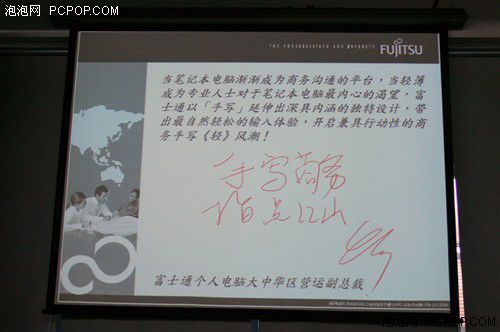 泡泡网 PCPOP.COM
THE POSSIBILITIES ARE INFINITE
FUJITSU
当笔记本电脑渐渐成为商务沟通的平台，当轻薄
成为专业人士对于笔记本电脑最内心的渴望，富
士通以「手写」延伸出深具内涵的独特设计，带
出最自然轻松的输入体验，开启兼具行动性的商
务手写《轻》风潮！
手写商务
指点江山
富士通个人电脑大中华区营运副总裁
All Rights Reserved, Copyright Fujitsu PC Asia Pacific Pte Ltd
泡泡网 PCPOP.COM